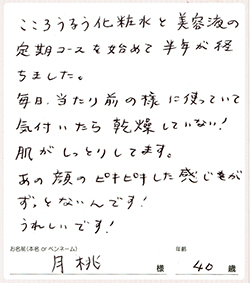 こころうるう化粧水と美容液の
定期コースを始めて半年が経
ちました。
毎日、当たり前の様に使っていて
気付いたら乾燥していない!
肌がしっとりしてます。
あの顔のピキピキした感じもが
ずっとないんです!
うれしいです!
お名前(本名 or ペンネーム) 年齢
月桃 様 40 歳